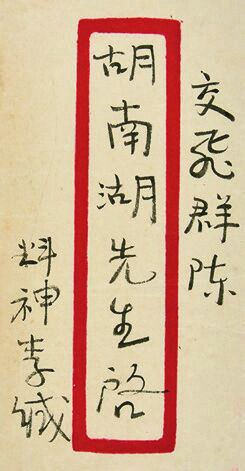 交飛群陈
胡南湖先生启
料神李缄